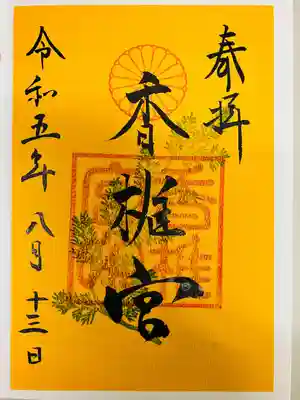 奉拝
香椎宮
令和五年八月十三日